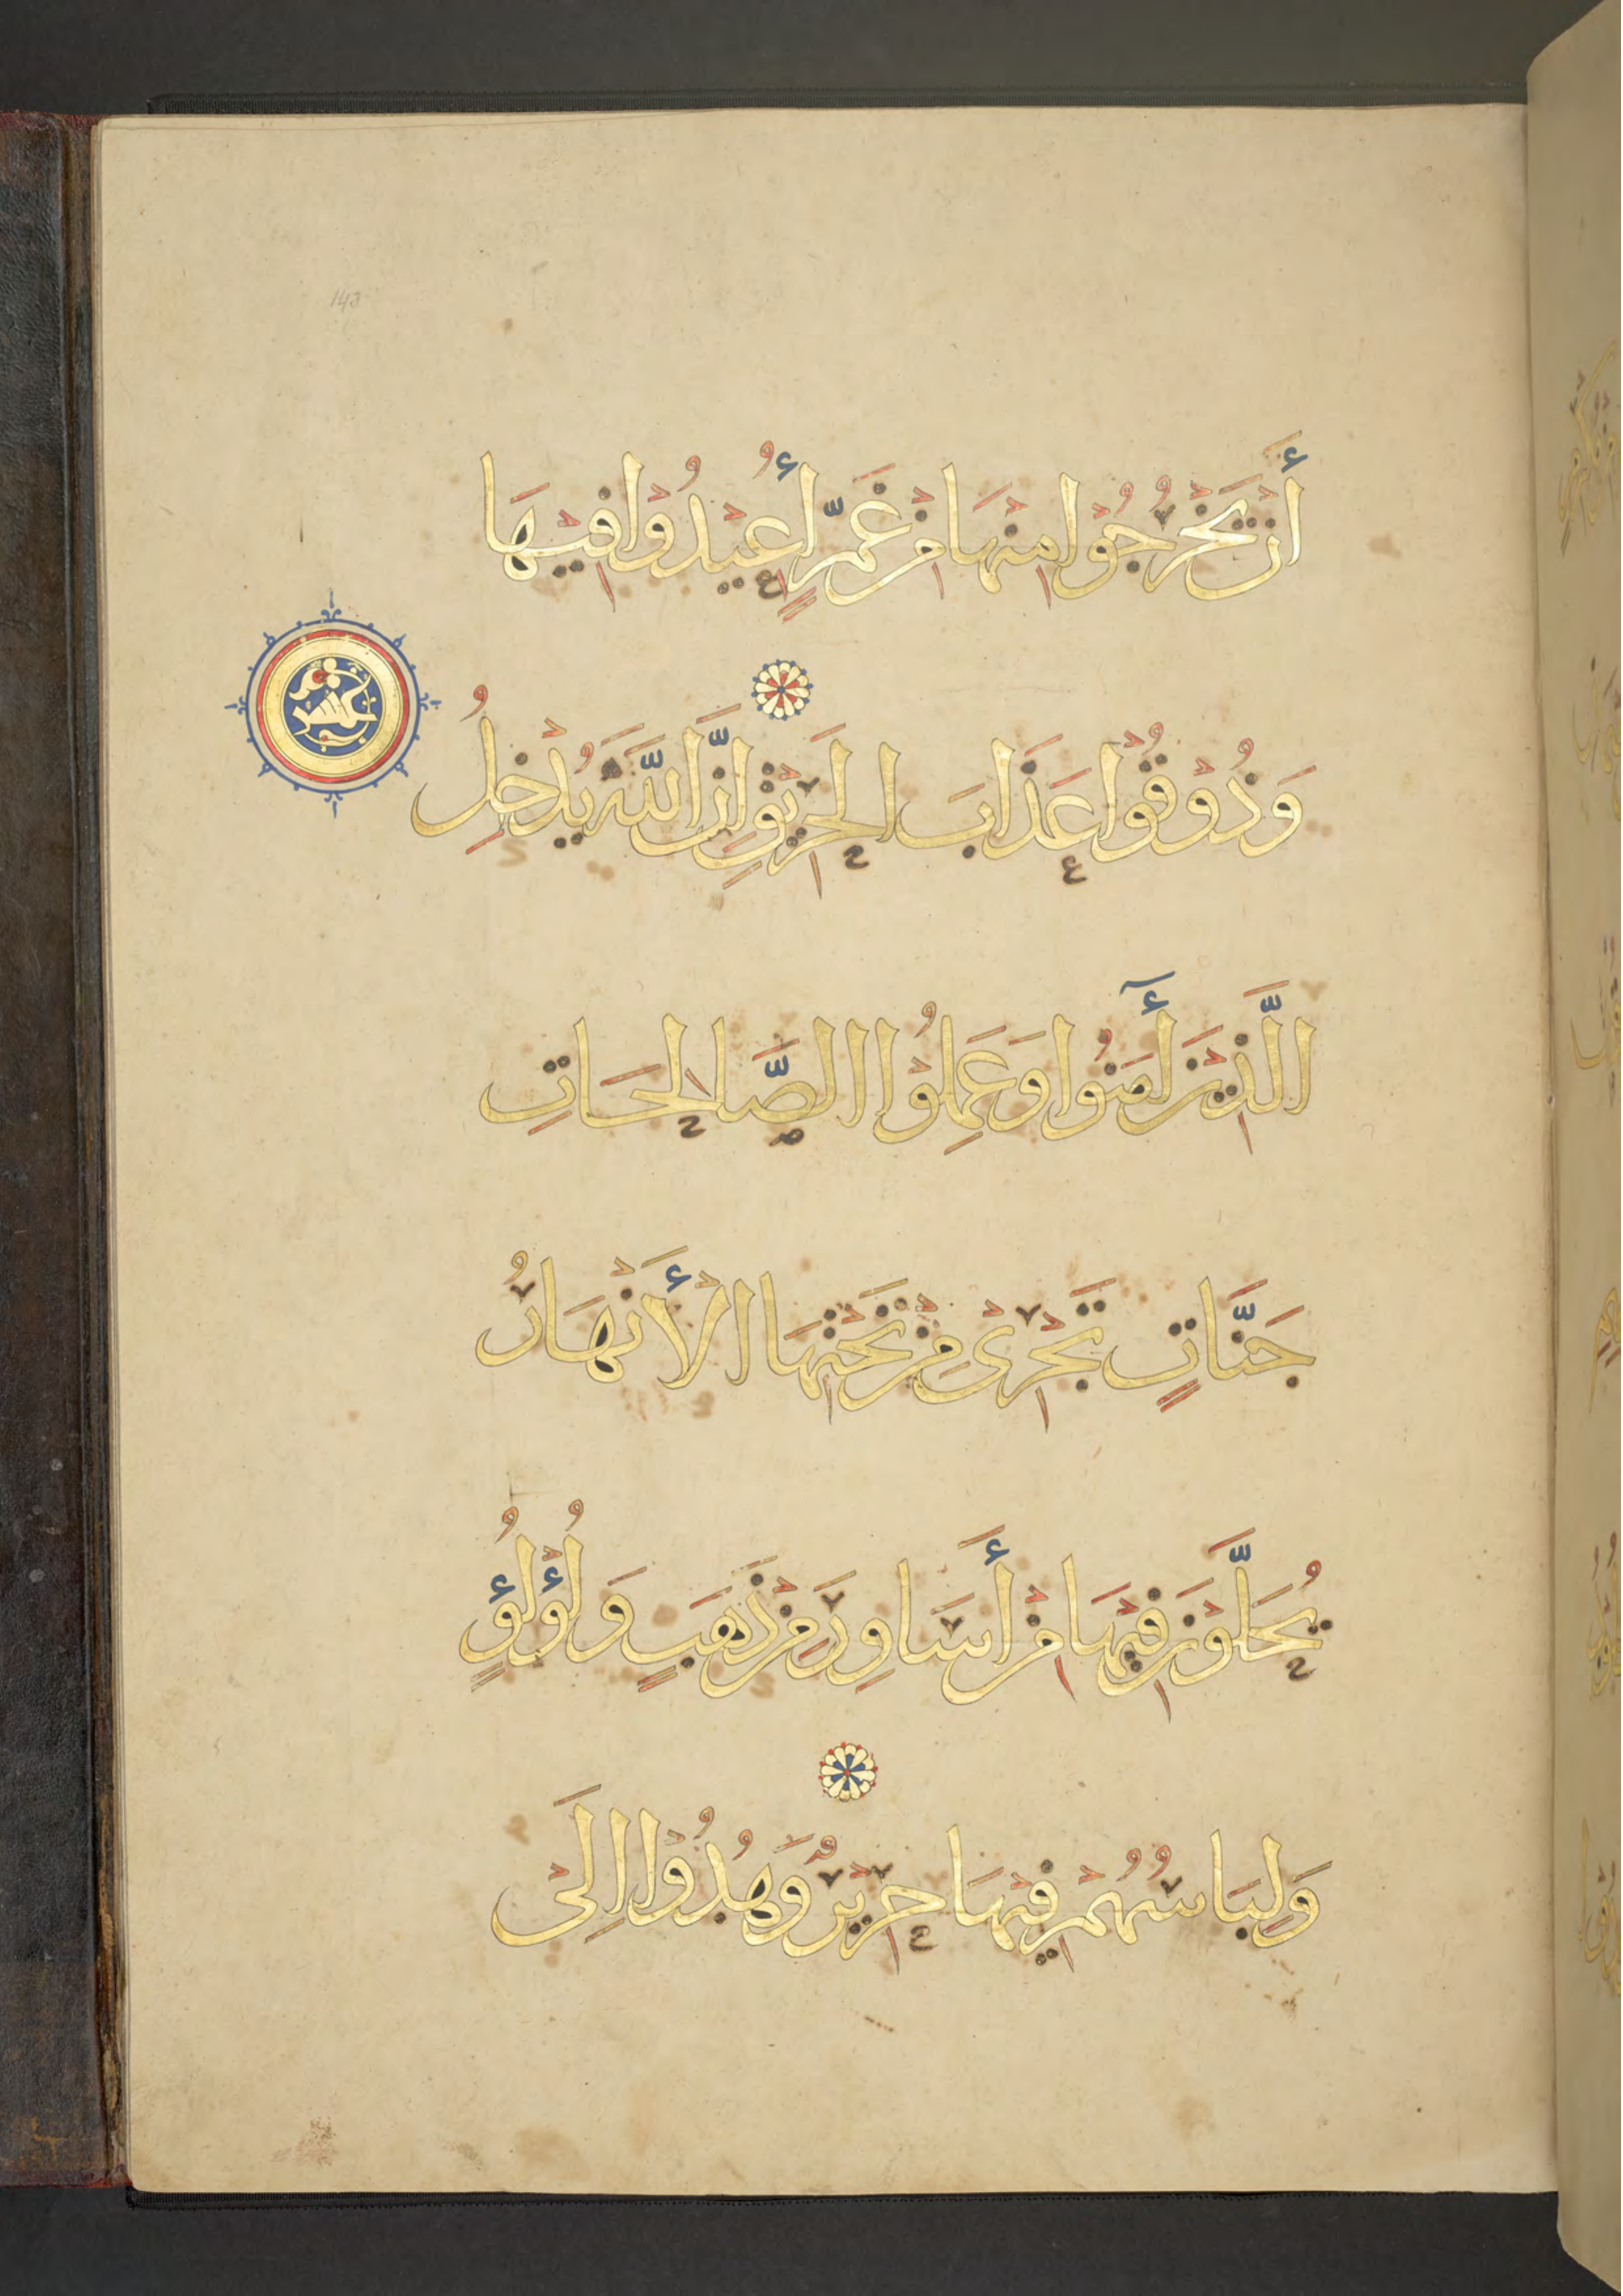 أَنْ يَخْرُجُوْا مِنْهَا مِنْ غَمٍّ أُعِيْدُوْا فِيْهَا
وَذُوْقُوْا عَذَابَ الْحَرِيْقِ إِنَّ اللَّهَ يُدْخِلُ
عشر
الَّذِيْنَ أٓمَنُوا وَعَمِلُوْا الصَّالِحَاتِ
جَنَّاتٍ تَجْرِيْ مِنْ تَحْتِهَا الْأَنْهَارُ
يُحَلَّوْنَ فِيْهَا مِنْ أَسَاوِرَ مِنْ ذَهَبٍ وَلُؤْلُؤٍ
وَلِبَاسُهُمْ فِيْهَا حَرِيْرٌ وَهُدُوْا إِلَى